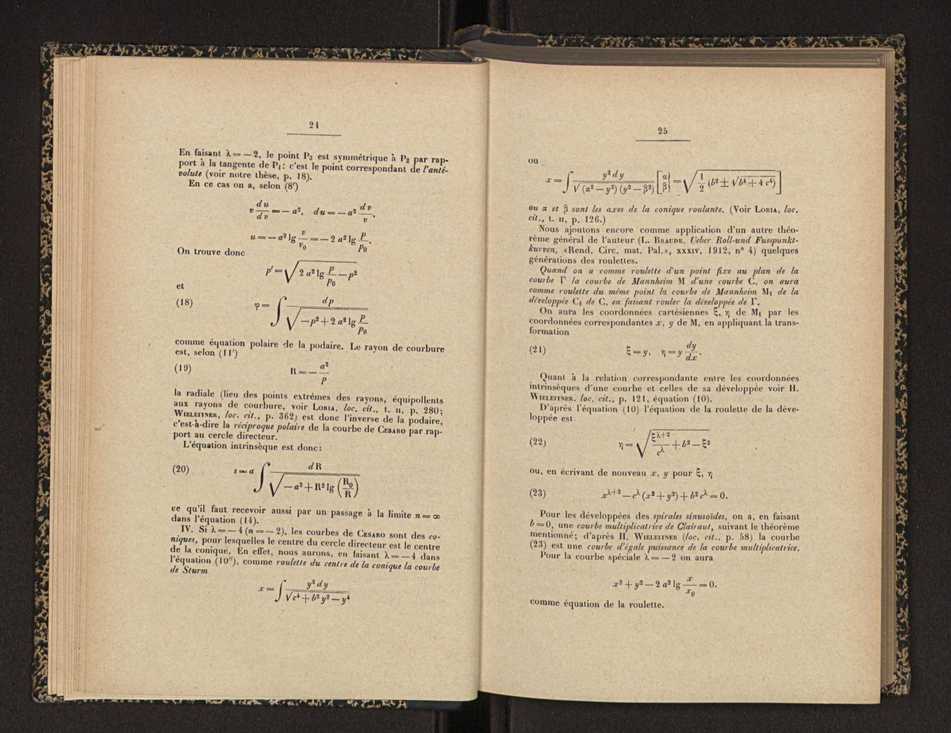 24
En faisant λ = — 2, le point P₃ est symmétrique à P₂ par rap-
port à la tangente de P₁: c'est le point correspondant de l'anté-
volute (voir notre thèse, p. 18).
En ce cas on a, selon (8')
v du/dv = — a², du = — a² dv/v,
u = — a² lg v/v₀ = — 2 a² lg p/p₀.
On trouve donc
p' = √(2 a² lg p/p₀ — p²)
et
(18) φ = ∫ dp / √(—p² + 2 a² lg p/p₀)
comme équation polaire de la podaire. Le rayon de courbure
est, selon (11')
(19) R = — a²/p
la radiale (lieu des points extrêmes des rayons, équipollents
aux rayons de courbure, voir LORIA, loc. cit., t. II, p. 280;
WIELEITNER, loc. cit., p. 362) est donc l'inverse de la podaire,
c'est-à-dire la réciproque polaire de la courbe de CESARO par rap-
port au cercle directeur.
L'équation intrinsèque est donc:
(20) s = a ∫ dR / √(—a² + R² lg (R₀/R))
ce qu'il faut recevoir aussi par un passage à la limite n = ∞
dans l'équation (14).
IV. Si λ = — 4 (n = — 2), les courbes de CESARO sont des co-
niques, pour lesquelles le centre du cercle directeur est le centre
de la conique. En effet, nous aurons, en faisant λ = — 4 dans
l'équation (10''), comme roulette du centre de la conique la courbe
de Sturm
x = ∫ y² dy / √(c⁴ + b² y² — y⁴)
25
ou
x = ∫ y² dy / √((α² — y²) (y² — β²)) [α β} = √(1/2 (b² ± √(b⁴ + 4 c⁴)]
ou α et β sont les axes de la conique roulante. (Voir LORIA, loc.
cit., t. II, p. 126.)
Nous ajoutons encore comme application d'un autre théo-
rème général de l'auteur (L. BRAUDE, Ueber Roll-und Fusspunkt-
kurven, «Rend. Circ. mat. Pal.», XXXIV, 1912, n° 4) quelques
générations des roulettes.
Quand on a comme roulette d'un point fixe au plan de la
courbe Γ la courbe de Mannheim M d'une courbe C, on aura
comme roulette du même point la courbe de Mannheim M₁ de la
développée C₁ de C, en faisant rouler la développée de Γ.
On aura les coordonnées cartésiennes ξ, η de M₁ par les
coordonnées correspondantes x, y de M, en appliquant la trans-
formation
(21) ξ = y, η = y dy/dx.
Quant à la relation correspondante entre les coordonnées
intrinsèques d'une courbe et celles de sa développée voir H.
WIELEITNER, loc. cit., p. 121, équation (10).
D'après l'équation (10) l'équation de la roulette de la déve-
loppée est
(22) η = √(ξ^(λ+2)/c^λ + b² — ξ²
ou, en écrivant de nouveau x, y pour ξ, η
(23) x^(λ+2) — c^λ (x² + y²) + b² c^λ = 0.
Pour les développées des spirales sinusoïdes, on a, en faisant
b = 0, une courbe multiplicatrice de Clairaut, suivant le théorème
mentionné; d'après H. WIELEITNER (loc. cit., p. 58) la courbe
(23) est une courbe d'égale puissance de la courbe multiplicatrice.
Pour la courbe spéciale λ = — 2 on aura
x² + y² — 2 a² lg x/x₀ = 0.
comme équation de la roulette.